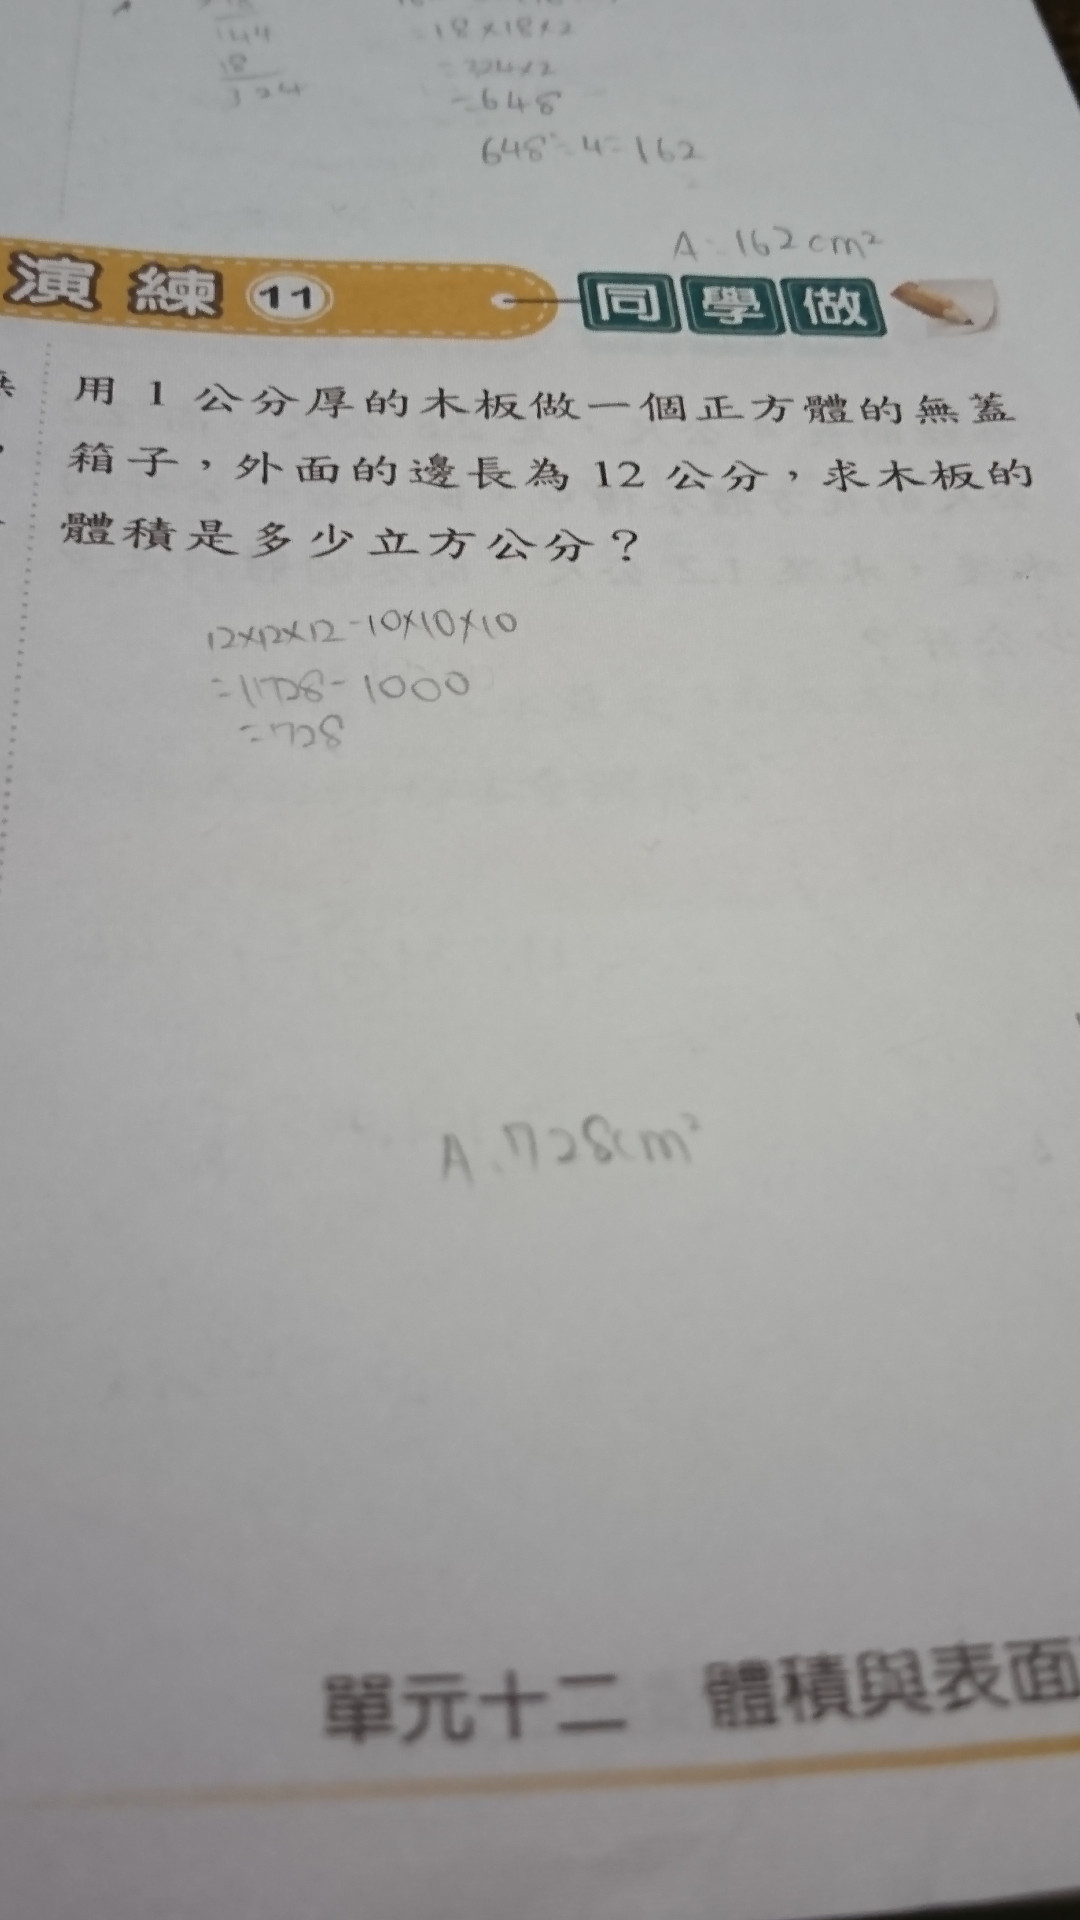 144
=18×18×2
18
=324×2
324
=648
648÷4=162
A:162cm²
演練 11 同學做
用 1 公分厚的木板做一個正方體的無蓋
箱子，外面的邊長為 12 公分，求木板的
體積是多少立方公分？
12×12×12-10×10×10
=1728-1000
=728
A.728cm²
單元十二 體積與表面